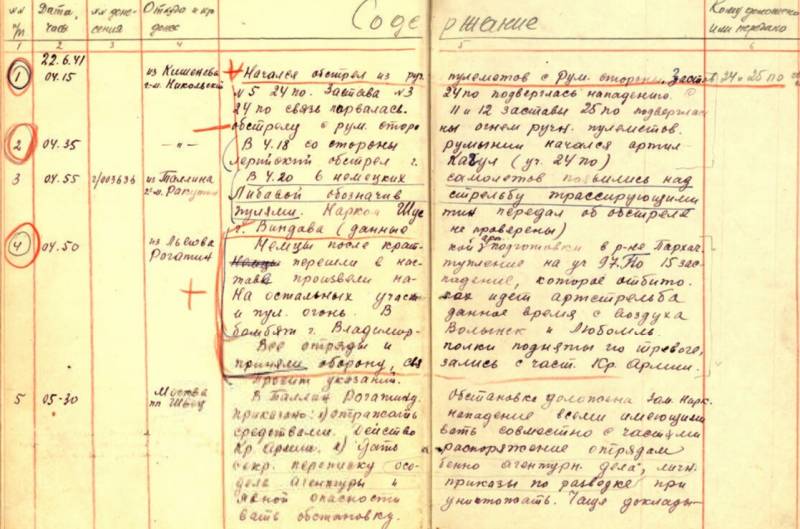 №№ п/п
Дата, часы
№№ доне-
сения
Откуда и кр.
донес
Содержание
Кому доложено
или передано
1 2 3 4 5 6
22.6.41
1 04.15 из Кишенева
г-м. Никольский
Начался обстрел из руч. пулеметов с Рум. стороны. Застав. 24 и 25 по
№5 24 по. Застава №3 24 по подверглась нападению. С
24 по связь порвалась. 11 и 12 заставы 25 по подверглись
обстрелу с рум. сторо ны огнем ручн. пулеметов.
2 04.35 —"—
В 4.18 со стороны румынии начался артил-
лерийский обстрел г. Кагул (уч. 24 по)
3 04.55 г/003636 из Таллина
г-м. Ракутин
В 4.20 6 немецких самолетов появились над
Либавой обозначив стрельбу трассирующими
пулями. Нарком Шус тин передал об обстреле
г. Виндава (данные не проверены)
4 04.50 из Львова
Рогатин
Немцы после крат- кой арт. подготовки в р-не Пархач.
Немцы перешли в нас- тупление на уч 97 По 15 зас-
тава произвели на- падение, которое отбито.
На остальных участ- ках идет артстрельба
и пул. огонь. В данное время с воздуха
бомбят г. Владимир- Волынск и Любомль.
Все отряды и полки подняты по тревоге,
приняли оборону, свя зались с част. Кр. Армии.
Просит указаний.
5 05-30 Москва
пп Швец
В Таллин Рогатину. Обстановка доложена Зам. Нарк.
приказано: 1) отражать нападение всеми имеющими
средствами. Действо вать совместно с частями
Кр. Армии. 2) Дать распоряжение отрядам
секр. переписку осо- бенно агентурн. дела, личн.
дела агентуры и приказы по разводке при
явной опасности уничтожать. Чаще доклады-
вать обстановку.